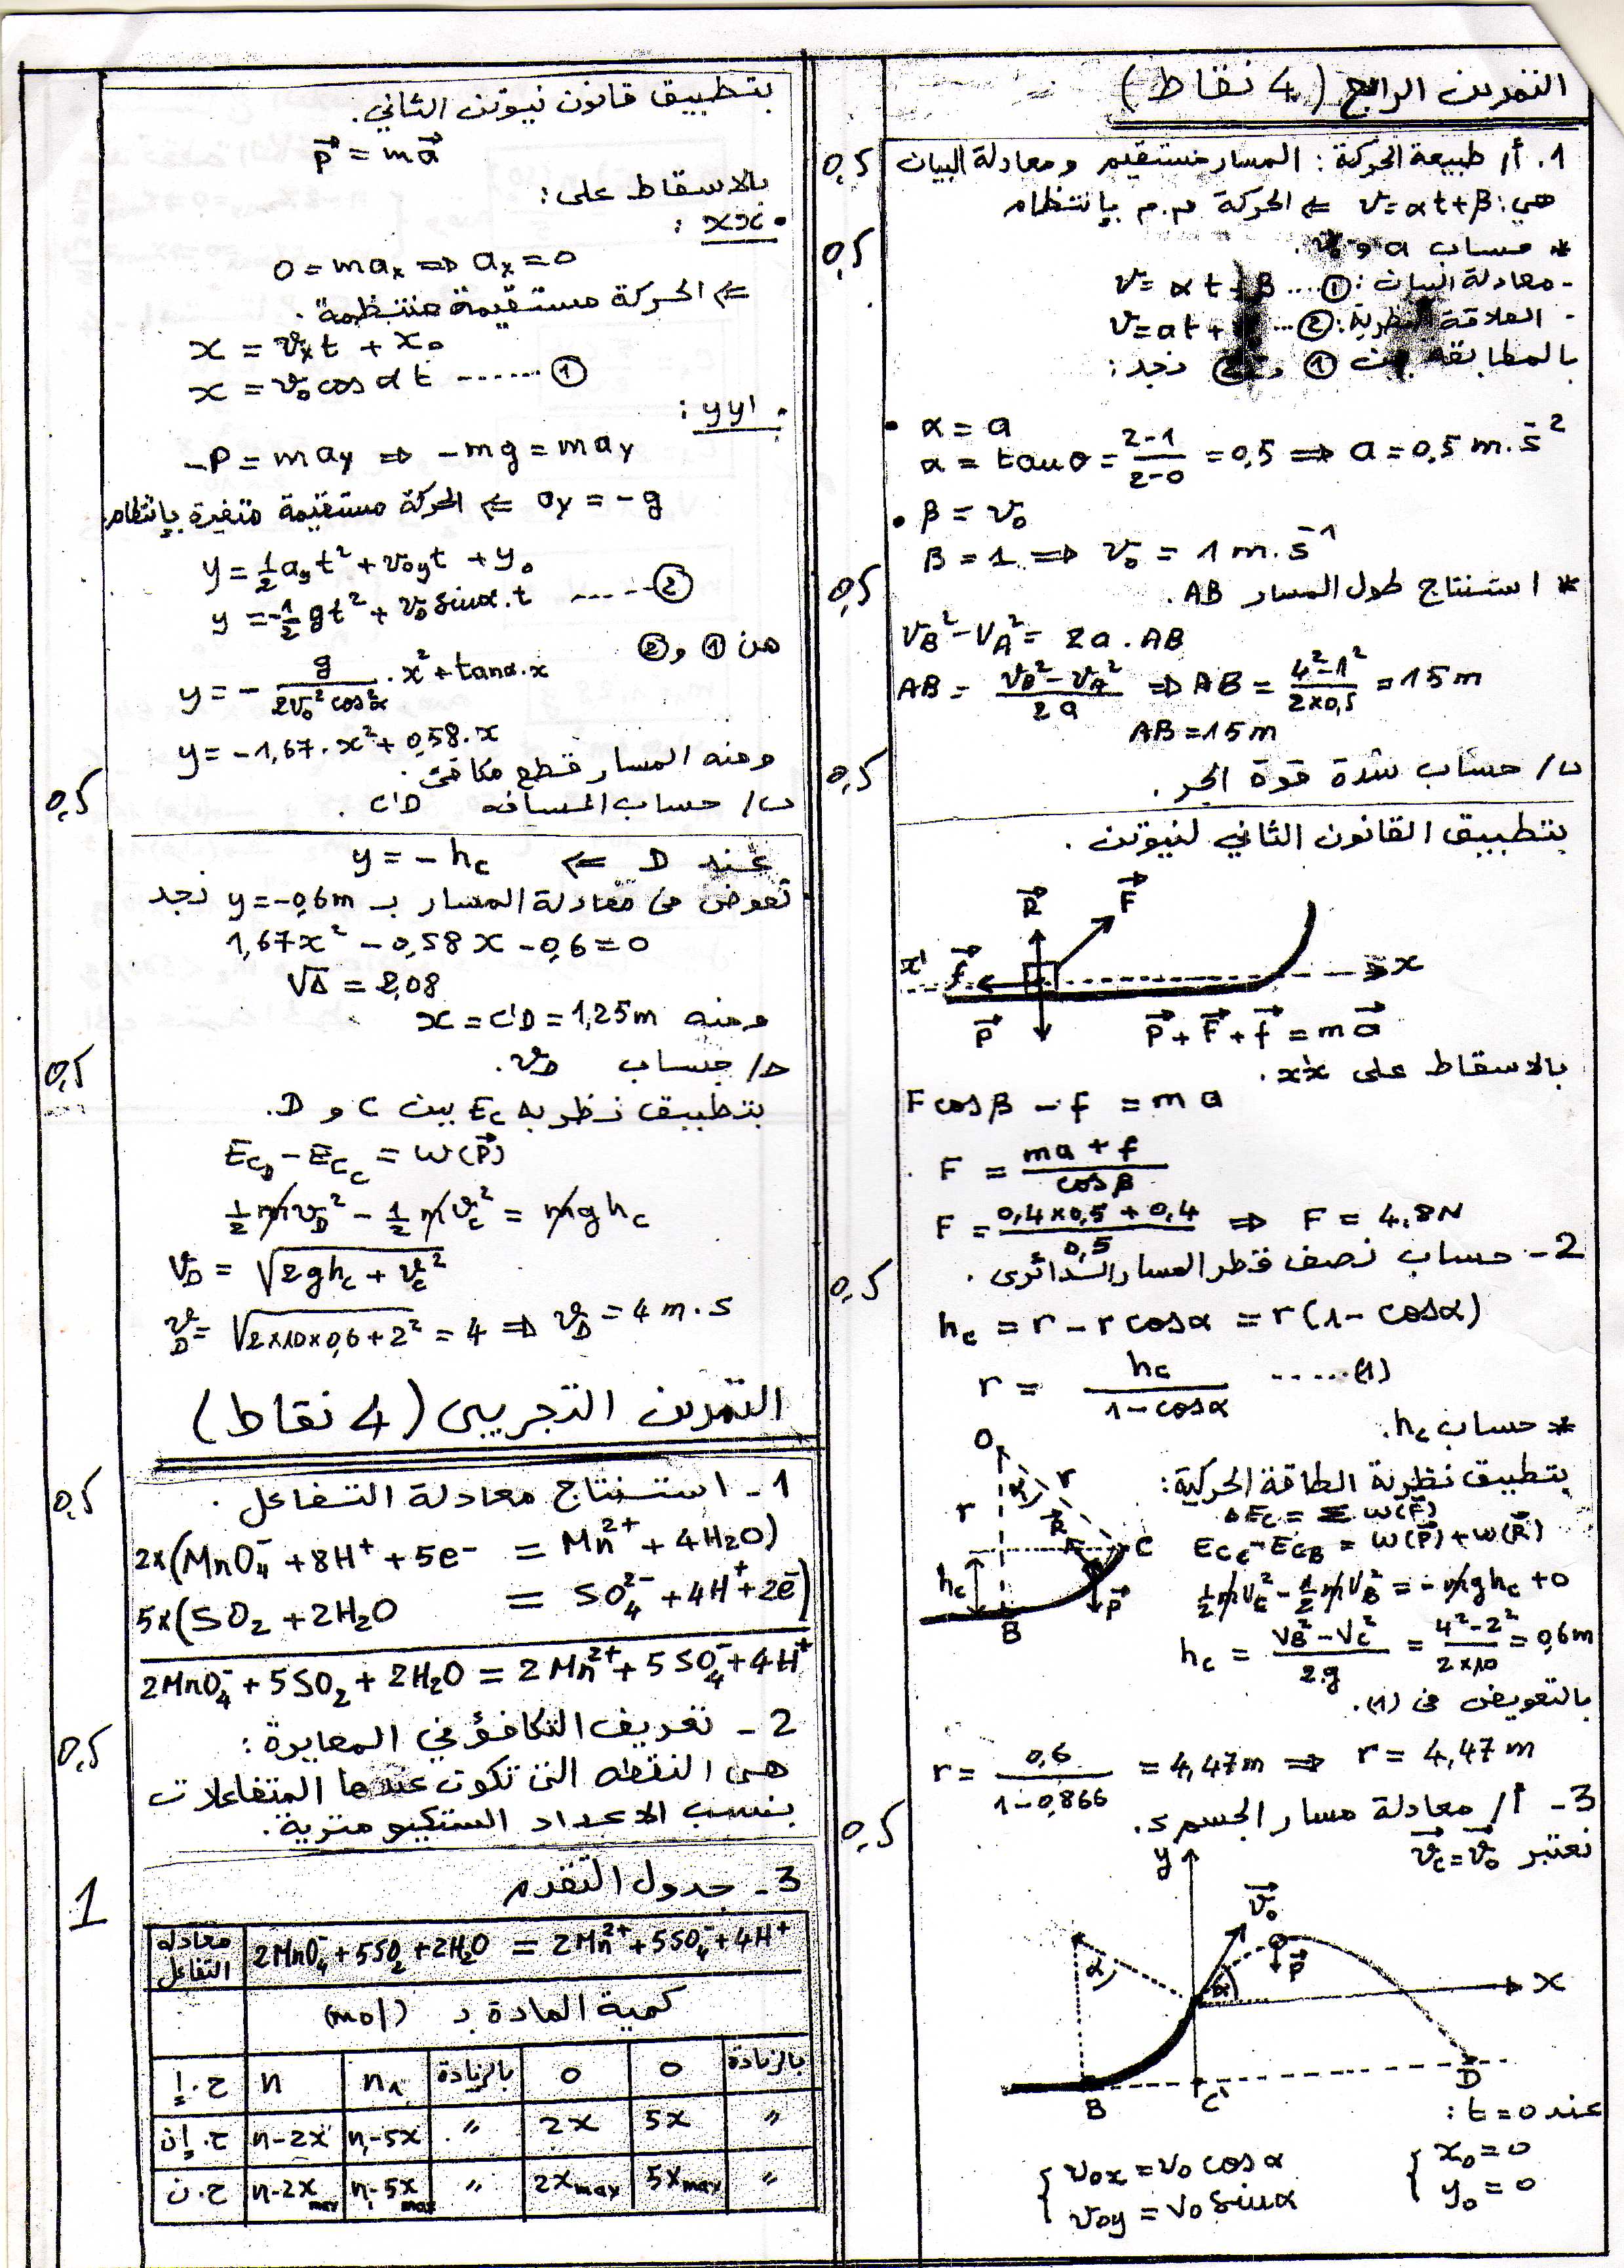 التمرين الرابع (4 نقاط)
0,5
1. أ/ طبيعة الحركة : المسار مستقيم ومعادلة البيان
هي: v = αt+β ⇐ الحركة م.م بإنتظام
0,5
* حساب a و v₀.
- معادلة البيان : ①.... v = αt + β
- العلاقة النظرية: ②... v = at +
بالمطابقة بين ① و ② نجد :
• α = a
α = tanθ = (2-1)/(2-0) = 0,5 ⇒ a = 0,5 m.s⁻²
• β = v₀
B = 1 ⇒ v₀ = 1 m.s⁻¹
0,5
* استنتاج طول المسار AB.
V_B² - V_A² = 2a.AB
AB = (v_B² - v_A²)/(2a) ⇒ AB = (4²-1²)/(2×0,5) = 15 m
AB = 15 m
0,5
ب/ حساب شدة قوة الجر .
بتطبيق القانون الثاني لنيوتن .
R⃗ F⃗
x' f⃗ x
P⃗ P⃗ + F⃗ + f⃗ = m a⃗
بالاسقاط على x'x.
F cosβ - f = m a
F = (ma + f)/(cosβ)
F = (0,4×0,5 + 0,4)/(0,5) ⇒ F = 4,8N
0,5
2- حساب نصف قطر المسار الدائري .
h_c = r - r cosα = r(1 - cosα)
r = h_c/(1-cosα) ......(1)
* حساب h_c.
بتطبيق نظرية الطاقة الحركية:
ΔE_C = Σ W(F⃗)
E_CC - E_CB = W(P⃗) + W(R⃗)
½mV_C² - ½mV_B² = -mgh_c + 0
h_c = (V_B² - V_C²)/(2g) = (4²-2²)/(2×10) = 0,6m
O r r α R⃗ C h_c P⃗ B
بالتعويض في (1).
r = 0,6/(1-0,866) = 4,47m ⇒ r = 4,47 m
0,5
3- أ/ معادلة مسار الجسم s.
نعتبر v⃗_C = v⃗₀
y v⃗₀ P⃗ α α x
B C' D
عند t = 0 :
{ x₀ = 0
y₀ = 0
{ v₀x = v₀ cosα
v₀y = v₀ sinα
بتطبيق قانون نيوتن الثاني.
P⃗ = m a⃗
بالاسقاط على :
• x'x :
0 = ma_x ⇒ a_x = 0
⇐ الحركة مستقيمة منتظمة .
x = v_x t + x₀
x = v₀ cosα t ....... ①
• y'y :
-P = ma_y ⇒ -mg = ma_y
a_y = -g ⇐ الحركة مستقيمة متغيرة بإنتظام
y = ½a_y t² + v₀y t + y₀
y = -½gt² + v₀ sinα.t ...... ②
من ① و ②
y = - g/(2v₀² cos²α) . x² + tanα.x
y = -1,67. x² + 0,58.x
ومنه المسار قطع مكافئ.
0,5
ب/ حساب المسافة C'D .
عند D ⇐ y = -h_c
نعوض في معادلة المسار بـ y = -0,6m نجد
1,67x² - 0,58x - 0,6 = 0
√Δ = 2,08
ومنه x = C'D = 1,25m
0,5
ج/ حساب v_D.
بتطبيق نظرية E_C بين C و D.
E_CD - E_CC = W(P⃗)
½mv_D² - ½mv_C² = mgh_c
V_D = √(2gh_c + v_C²)
v_D = √(2×10×0,6+2²) = 4 ⇒ v_D = 4 m.s
التمرين التجريبي (4 نقاط)
0,5
1- استنتاج معادلة التفاعل .
2×(MnO₄⁻ + 8H⁺ + 5e⁻ = Mn²⁺ + 4H₂O)
5×(SO₂ + 2H₂O = SO₄²⁻ + 4H⁺ + 2e⁻)
2MnO₄⁻ + 5SO₂ + 2H₂O = 2Mn²⁺ + 5SO₄⁻ + 4H⁺
0,5
2- تعريف التكافؤ في المعايرة :
هي النقطة التي تكون عندها المتفاعلات
بنسب الاعداد الستكيومترية.
1
3- جدول التقدم
معادلة التفاعل 2MnO₄⁻ + 5SO₂ + 2H₂O = 2Mn²⁺ + 5SO₄⁻ + 4H⁺
كمية المادة بـ (mol)
ح.إ n n₁ بالزيادة 0 0 بالزيادة
ح.إن n-2x n₁-5x " 2x 5x "
ح.ن n-2x_max n₁-5x_max " 2x_max 5x_max "